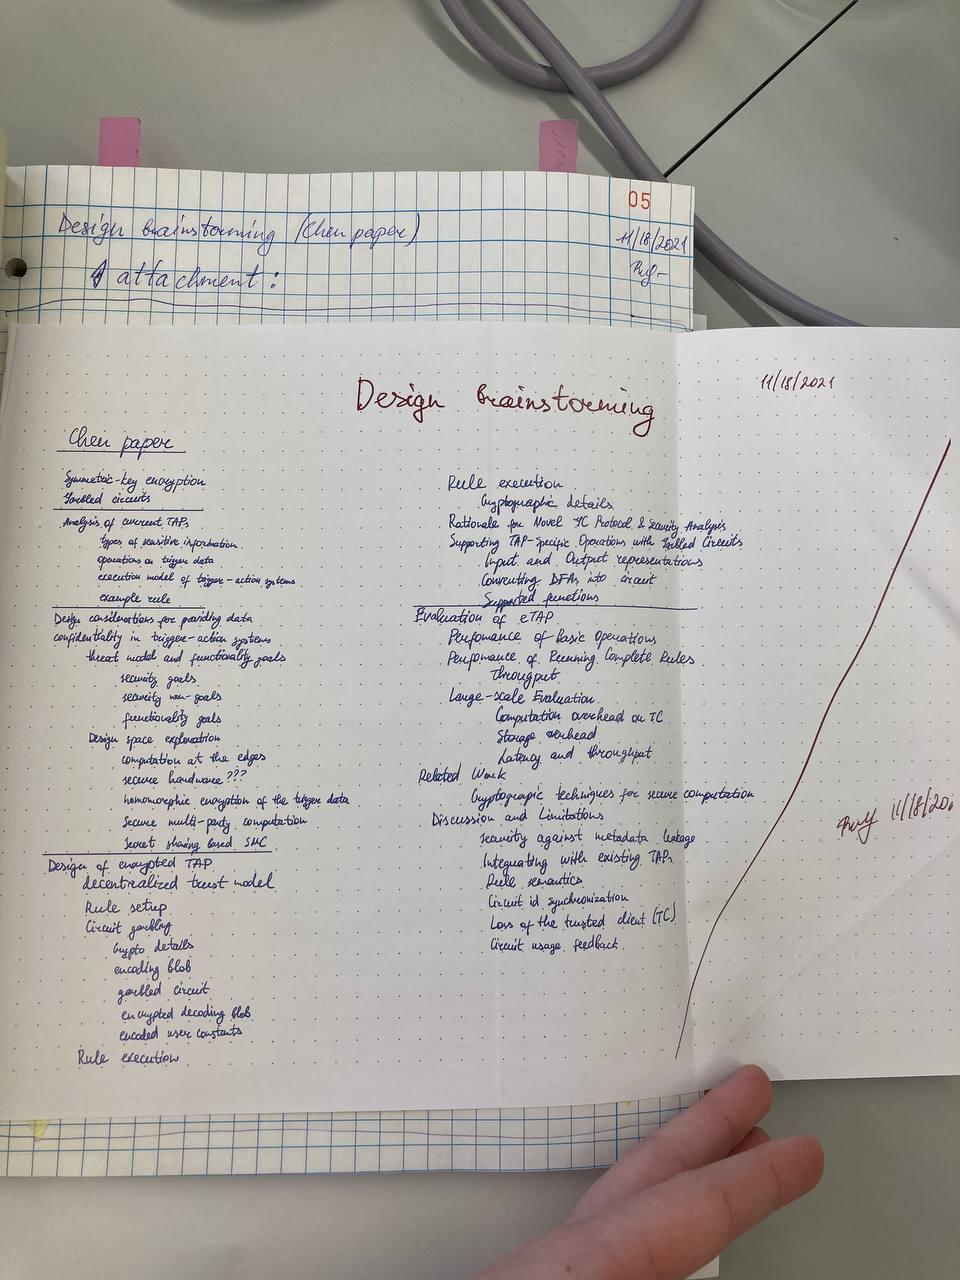 05
Design brainstorming (Chen paper)
11/18/2021
1 attachment:
Design brainstorming
11/18/2021
Chen paper
Symmetric-key encryption
Garbled circuits
Analysis of current TAPs
types of sensitive information
operations on trigger data
execution model of trigger-action systems
example rule
Design considerations for providing data
confidentiality in trigger-action systems
threat model and functionality goals
security goals
security non-goals
functionality goals
Design space exploration
computation at the edges
secure hardware???
homomorphic encryption of the trigger data
Secure multi-party computation
Secret sharing based SMC
Design of encrypted TAP
decentralized trust model
Rule setup
Circuit garbling
Crypto details
encoding blob
garbled circuit
encrypted decoding blob
encoded user constants
Rule execution
Rule execution
Cryptographic details
Rationale for Novel GC Protocol & Security Analysis
Supporting TAP-Specific Operations with Garbled Circuits
Input and Output representations
Converting DFAs into circuit
Supported functions
Evaluation of eTAP
Perfomance of Basic Operations
Perfomance of Running Complete Rules
Throughput
Large-scale Evaluation
Computation overhead on TC
Storage overhead
Latency and throughput
Related Work
Cryptograpic techniques for secure computation
Discussion and Limitations
Security against metadata leakage
Integrating with existing TAPs
Rule semantics
Circuit id synchronization
Loss of the trusted client (TC)
Circuit usage feedback
11/18/20